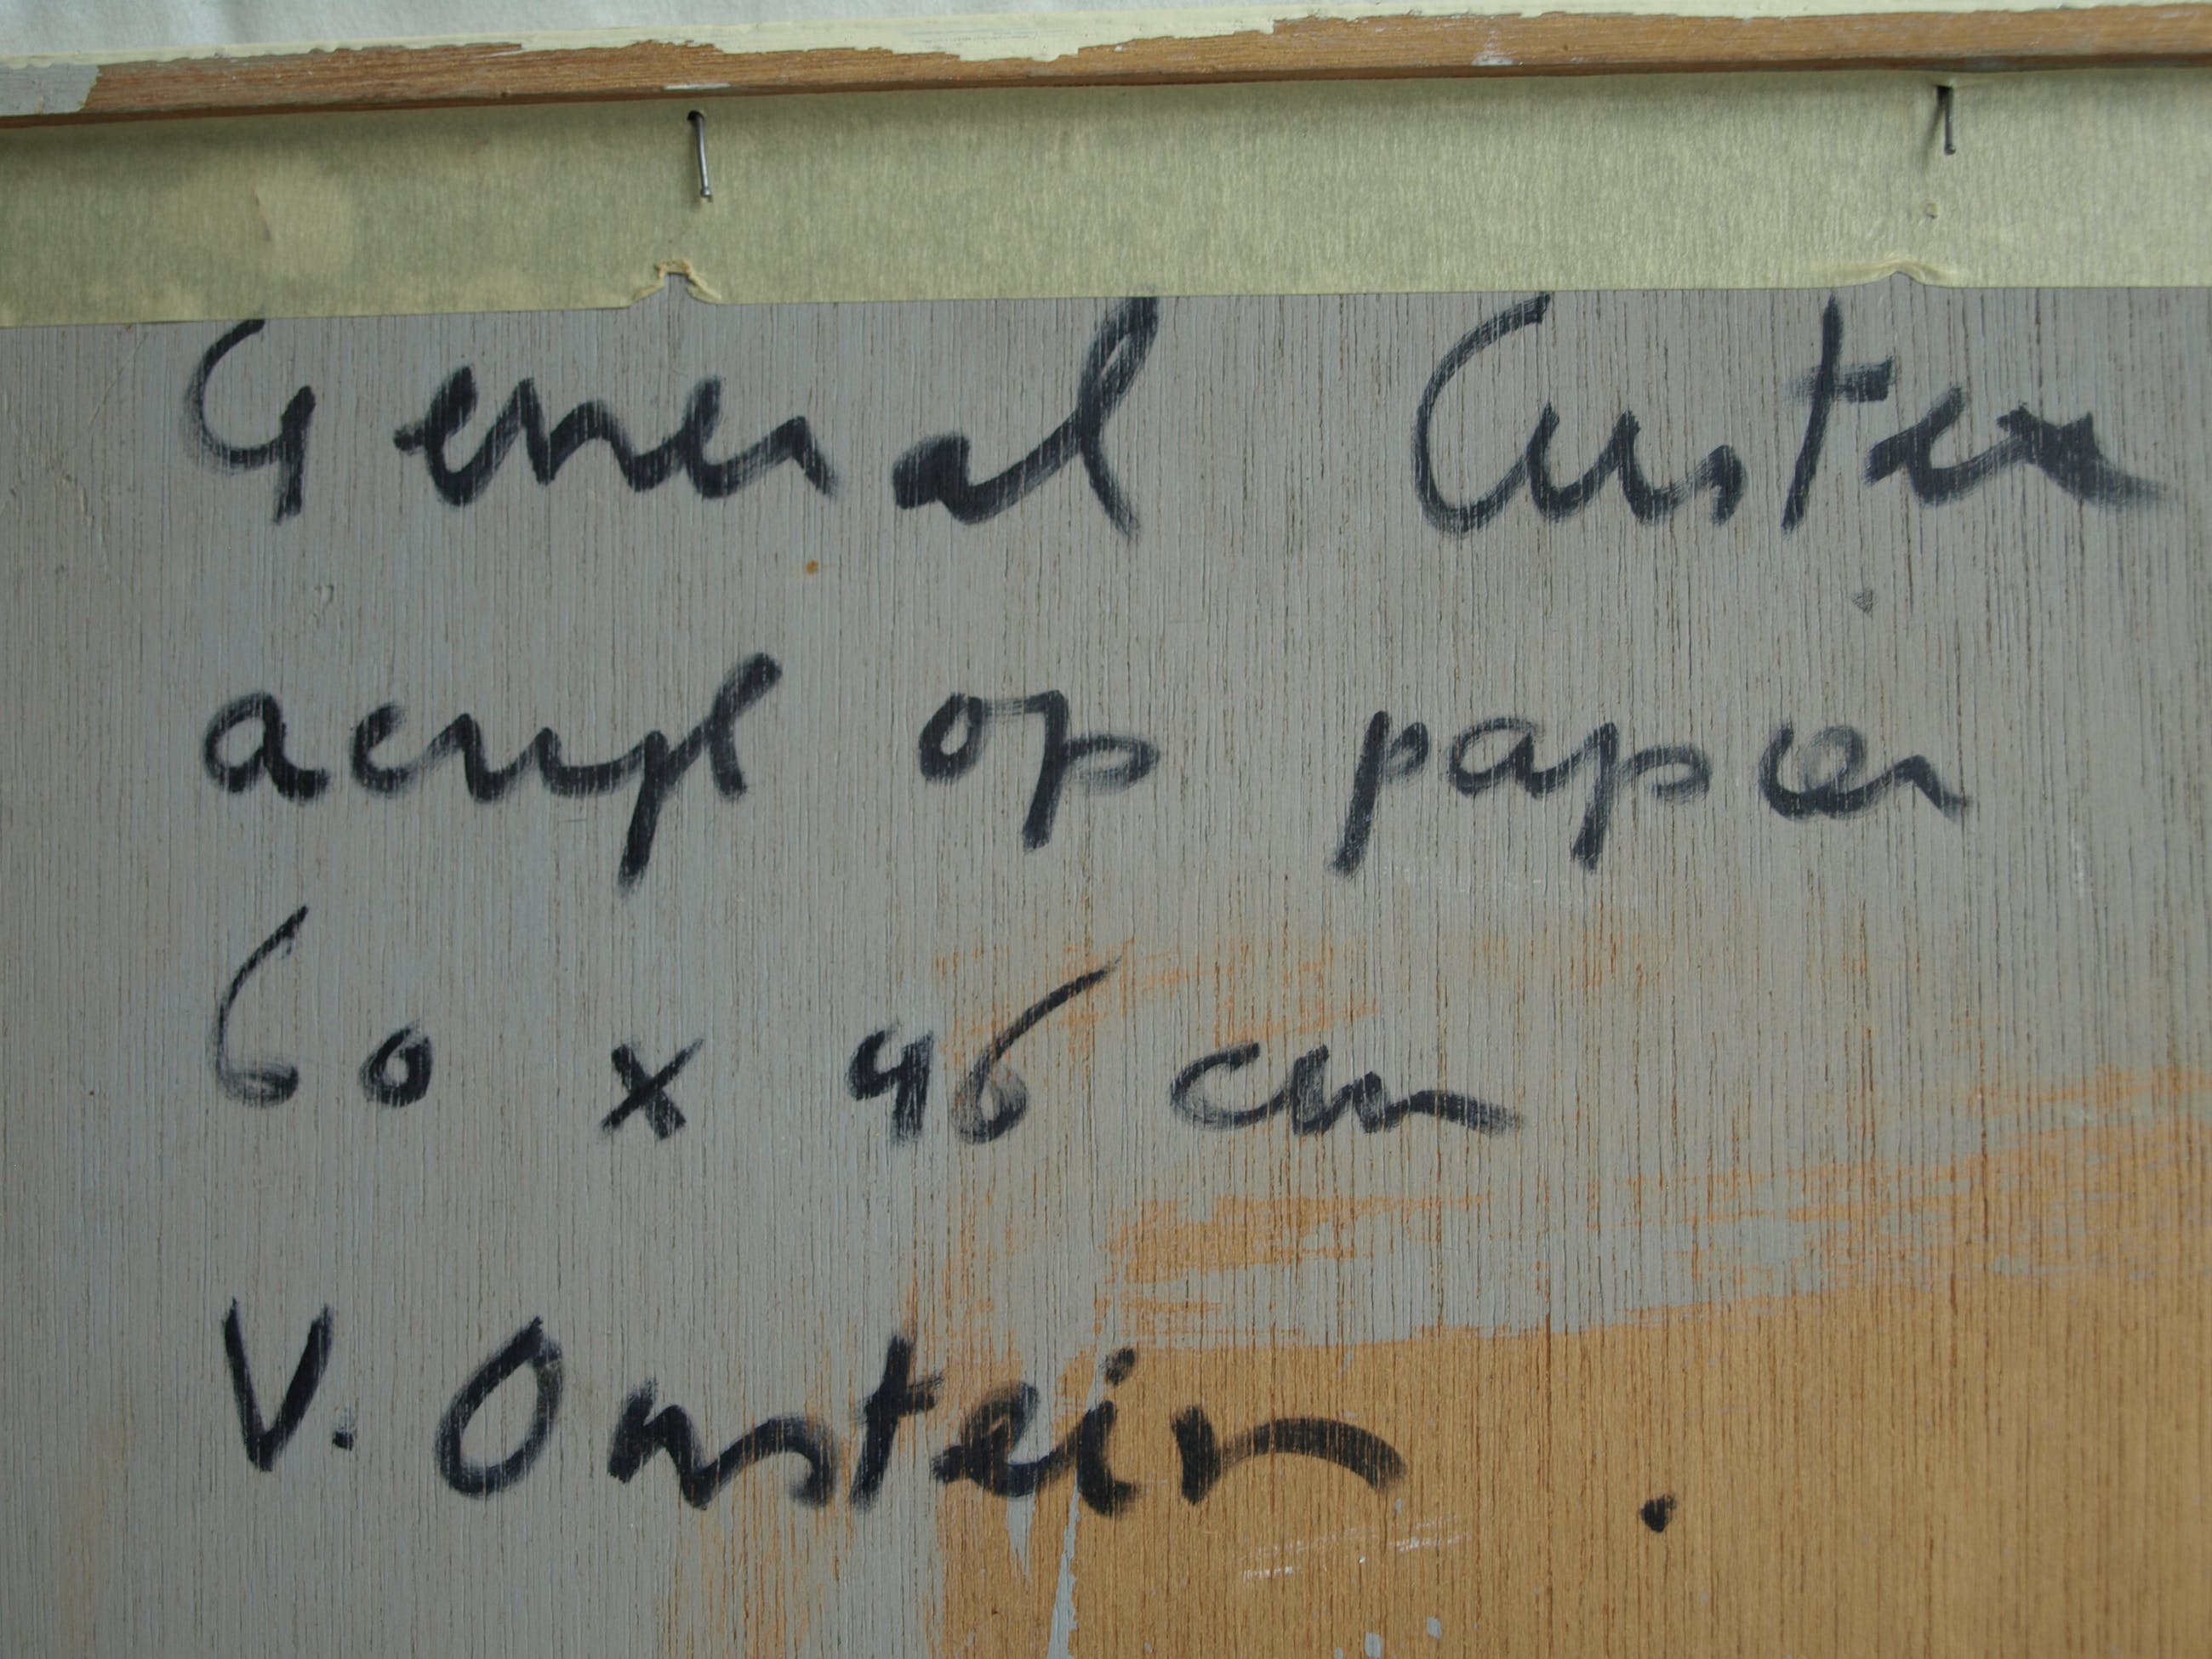 General Custer
acryl op papier
60 x 46 cm
V. Onstein.